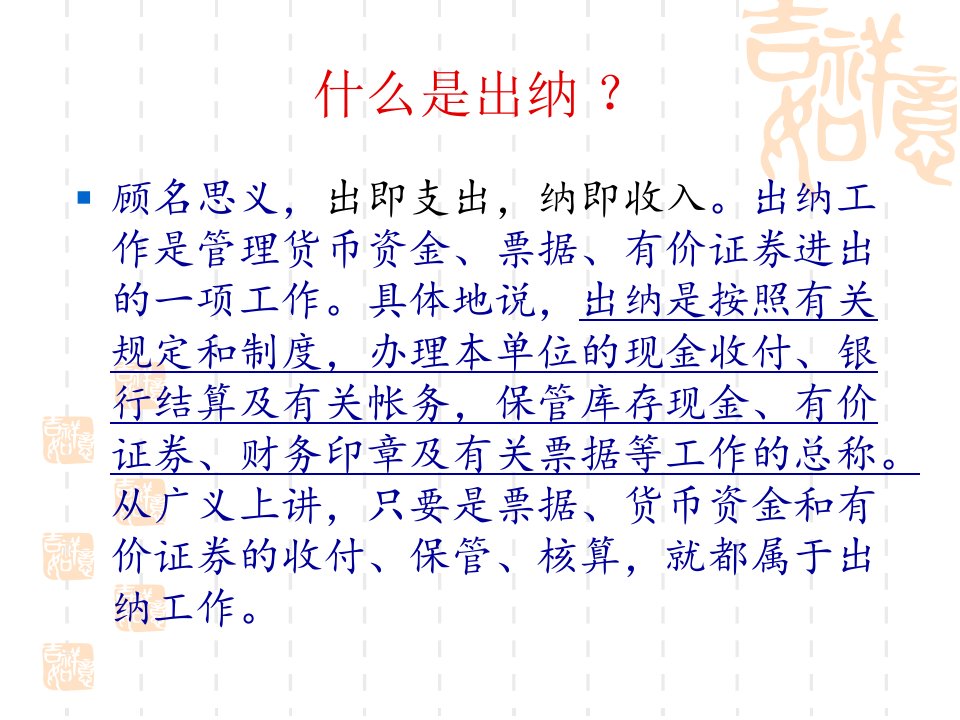 吉祥如意
什么是出纳？
顾名思义，出即支出，纳即收入。出纳工
作是管理货币资金、票据、有价证券进出
的一项工作。具体地说，出纳是按照有关
规定和制度，办理本单位的现金收付、银
行结算及有关帐务，保管库存现金、有价
证券、财务印章及有关票据等工作的总称。
从广义上讲，只要是票据、货币资金和有
价证券的收付、保管、核算，就都属于出
纳工作。
吉祥如意
吉祥如意
吉祥如意
吉祥如意
吉祥如意